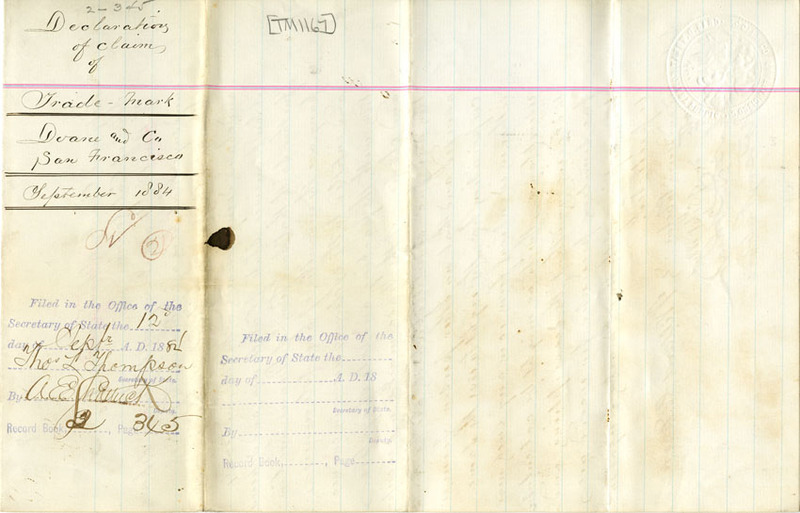 2-345
Declaration
of claim
of
Trade-Mark
Doane and Co
San Francisco
September 1884
No 2
Filed in the Office of the
Secretary of State the 12
day of Septr A. D. 1884
Thos L Thompson
Secretary of State.
By A. E.
Deputy.
Record Book, 2, Page 345
[TM1167]
Filed in the Office of the
Secretary of State the
day of A. D. 18
Secretary of State.
By
Deputy.
Record Book, , Page